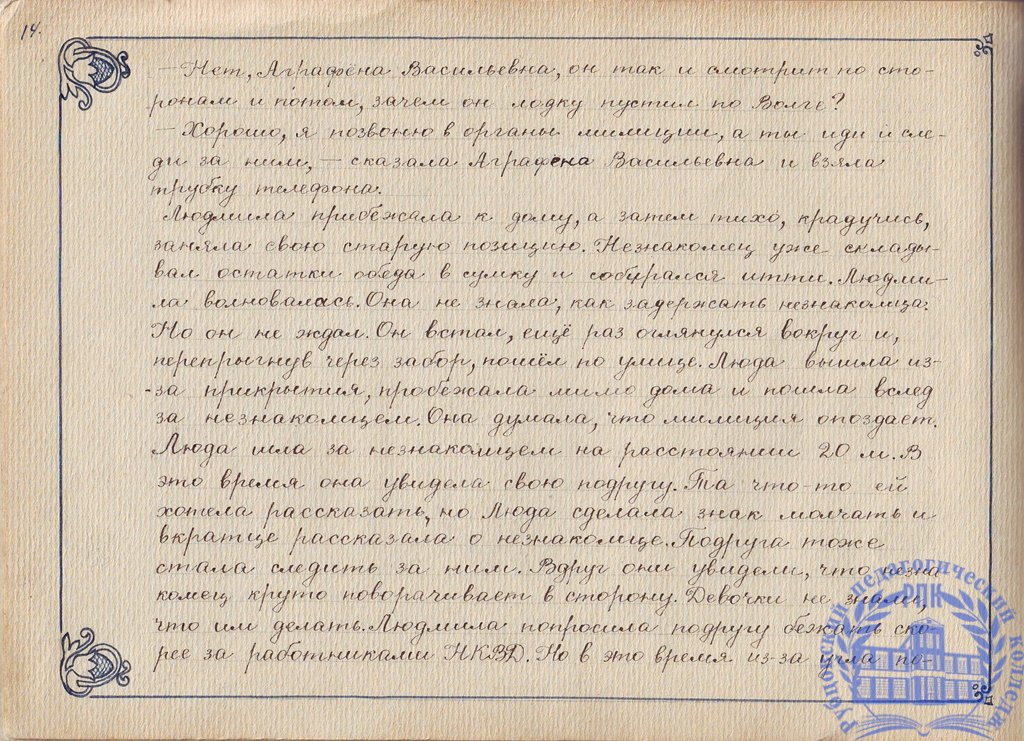 14.
— Нет, Аграфёна Васильевна, он так и смотрит по сто-
ронам и потом, зачем он лодку пустил по Волге?
— Хорошо, я позвоню в органы милиции, а ты иди и сле-
ди за ним, — сказала Аграфена Васильевна и взяла
трубку телефона.
Людмила прибежала к дому, а затем тихо, крадучись,
заняла свою старую позицию. Незнакомец уже склады-
вал остатки обеда в сумку и собирался итти. Людми-
ла волновалась. Она не знала, как задержать незнакомца.
Но он не ждал. Он встал, ещё раз оглянулся вокруг и,
перепрыгнув через забор, пошёл по улице. Люда вышла из-
-за прикрытия, пробежала мимо дома и пошла вслед
за незнакомцем. Она думала, что милиция опоздает.
Люда шла за незнакомцем на расстоянии 20 м. В
это время она увидела свою подругу. Та что-то ей
хотела рассказать, но Люда сделала знак молчать и
вкратце рассказала о незнакомце. Подруга тоже
стала следить за ним. Вдруг они увидели, что незна
комец круто поворачивает в сторону. Девочки не знали,
что им делать. Людмила попросила подругу бежать ско-
рее за работниками НКВД. Но в это время из-за угла по-
Рубцовский педагогический колледж
РПК